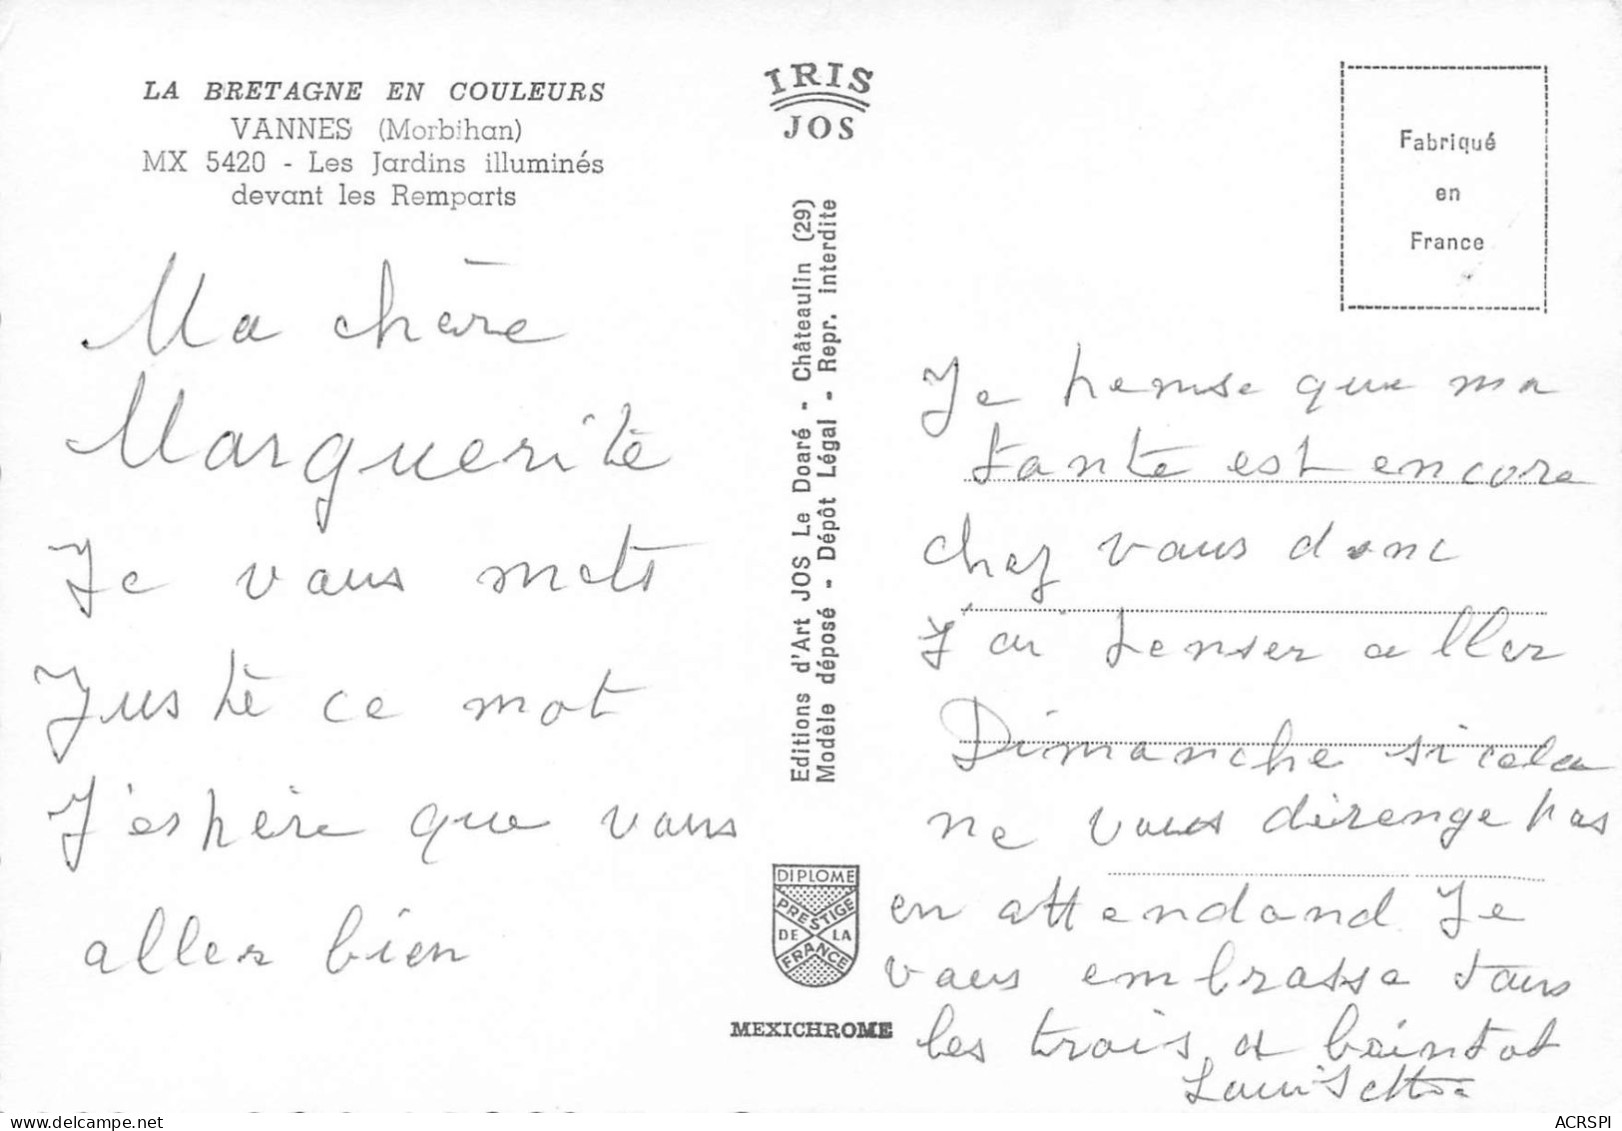 LA BRETAGNE EN COULEURS
VANNES (Morbihan)
MX 5420 - Les Jardins illuminés
devant les Remparts
Ma chère
Marguerite
Je vous mets
Juste ce mot
J'espère que vous
aller bien
IRIS
JOS
Editions d'Art JOS Le Doaré - Châteaulin (29)
Modèle déposé - Dépôt Légal - Repr. interdite
DIPLOME
PRESTIGE
DE LA
FRANCE
MEXICHROME
Fabriqué
en
France
Je pense que ma
tante est encore
chez vous donc
J'ai penser aller
Dimanche si cela
ne vous dérenge pas
en attendand Je
vous embrasse tous
les trois a beintot
ACRSPI